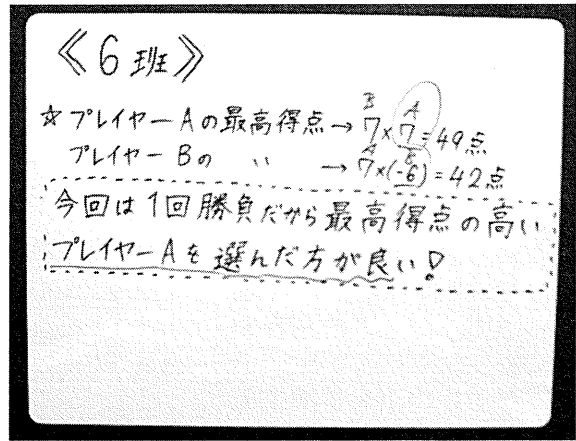 《6班》
☆プレイヤーAの最高得点→ 7×7=49点
B A
プレイヤーBの 〃 → 7×(-6)=42点
A B
今回は1回勝負だから最高得点の高い
プレイヤーAを選んだ方が良い!